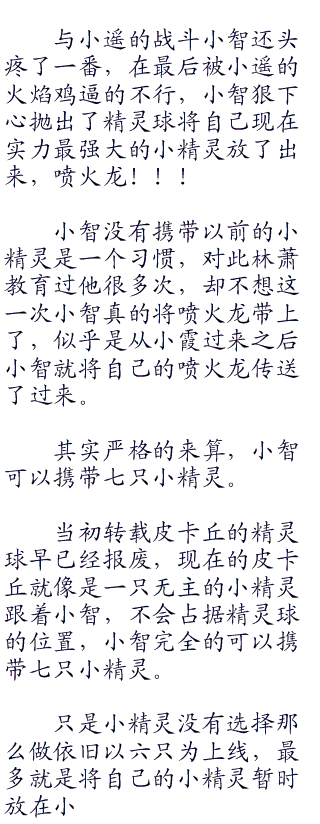 与小遥的战斗小智还头
疼了一番，在最后被小遥的
火焰鸡逼的不行，小智狠下
心抛出了精灵球将自己现在
实力最强大的小精灵放了出
来，喷火龙！！！
小智没有携带以前的小
精灵是一个习惯，对此林萧
教育过他很多次，却不想这
一次小智真的将喷火龙带上
了，似乎是从小霞过来之后
小智就将自己的喷火龙传送
了过来。
其实严格的来算，小智
可以携带七只小精灵。
当初转载皮卡丘的精灵
球早已经报废，现在的皮卡
丘就像是一只无主的小精灵
跟着小智，不会占据精灵球
的位置，小智完全的可以携
带七只小精灵。
只是小精灵没有选择那
么做依旧以六只为上线，最
多就是将自己的小精灵暂时
放在小